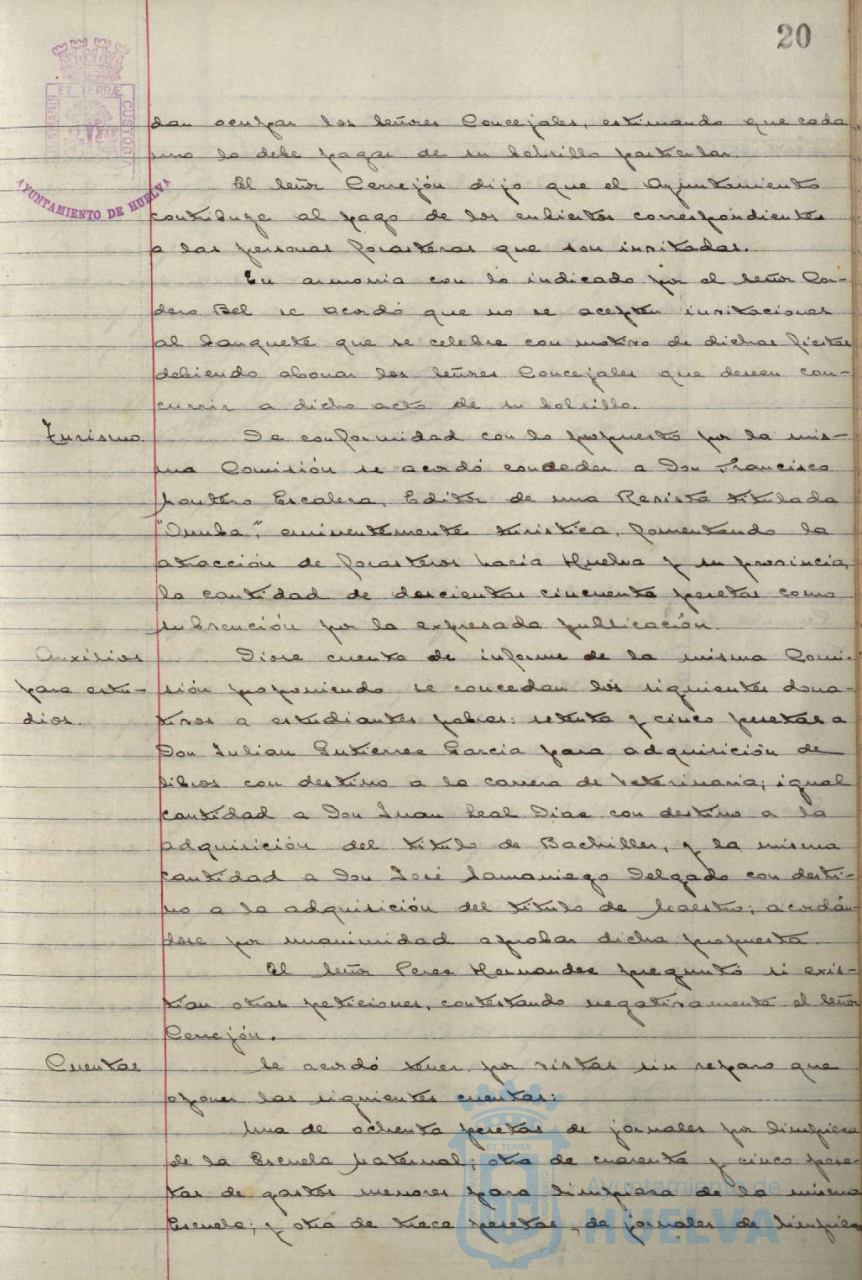 20
PORTUS MARIS ET TERRÆ CUSTODIA
AYUNTAMIENTO DE HUELVA
dan ocupar los Señores Concejales, estimando que cada
uno lo debe pagar de su bolsillo particular.
El Señor Cerrejón dijo que el Ayuntamiento
contribuye al pago de los cubiertos correspondientes
a las personas forasteras que son invitadas.
En armonia con lo indicado por el Señor Cor-
dero Bel se acordó que no se acepten invitaciones
al banquete que se celebre con motivo de dichas fiestas
debiendo abonar los Señores Concejales que deseen con-
currir a dicho acto de su bolsillo.
Turismo.
De conformidad con lo propuesto por la mis-
ma Comisión se acordó conceder a Don Francisco
Montero Escalera, Editor de una Revista titulada
"Onuba", eminentemente turistica, fomentando la
atracción de forasteros hacia Huelva y su provincia,
la cantidad de doscientas cincuenta pesetas como
subvención por la expresada publicación.
Auxilios
para estu-
dios.
Diose cuenta de informe de la misma Comi-
sión proponiendo se concedan los siguientes dona-
tivos a estudiantes pobres: setenta y cinco pesetas a
Don Julian Gutierrez Garcia para adquisición de
libros con destino a la carrera de Veterinaria; igual
cantidad a Don Juan Leal Diaz con destino a la
adquisición del titulo de Bachiller, y la misma
cantidad a Don José Samaniego Delgado con desti-
no a la adquisición del titulo de Maestro; acordán-
dose por unanimidad aprobar dicha propuesta.
El Señor Perez Hernandez preguntó si exis-
tian otras peticiones, contestando negativamente el Señor
Cerrejón.
Cuentas
Se acordó tener por vistas sin reparo que
oponer las siguientes cuentas:
Una de ochenta pesetas de jornales por limpieza
de la Escuela Maternal; otra de cuarenta y cinco pese-
tas de gastos menores para limpieza de la misma
Escuela; y otra de trece pesetas, de jornales de limpieza
Ayuntamiento de
HUELVA